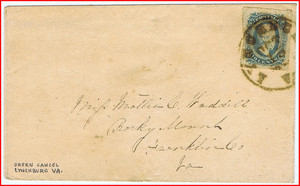 Miss Mollie C Waddill
Rocky Mount
Franklin Co
Va
GREEN CANCEL
LYNCHBURG VA.